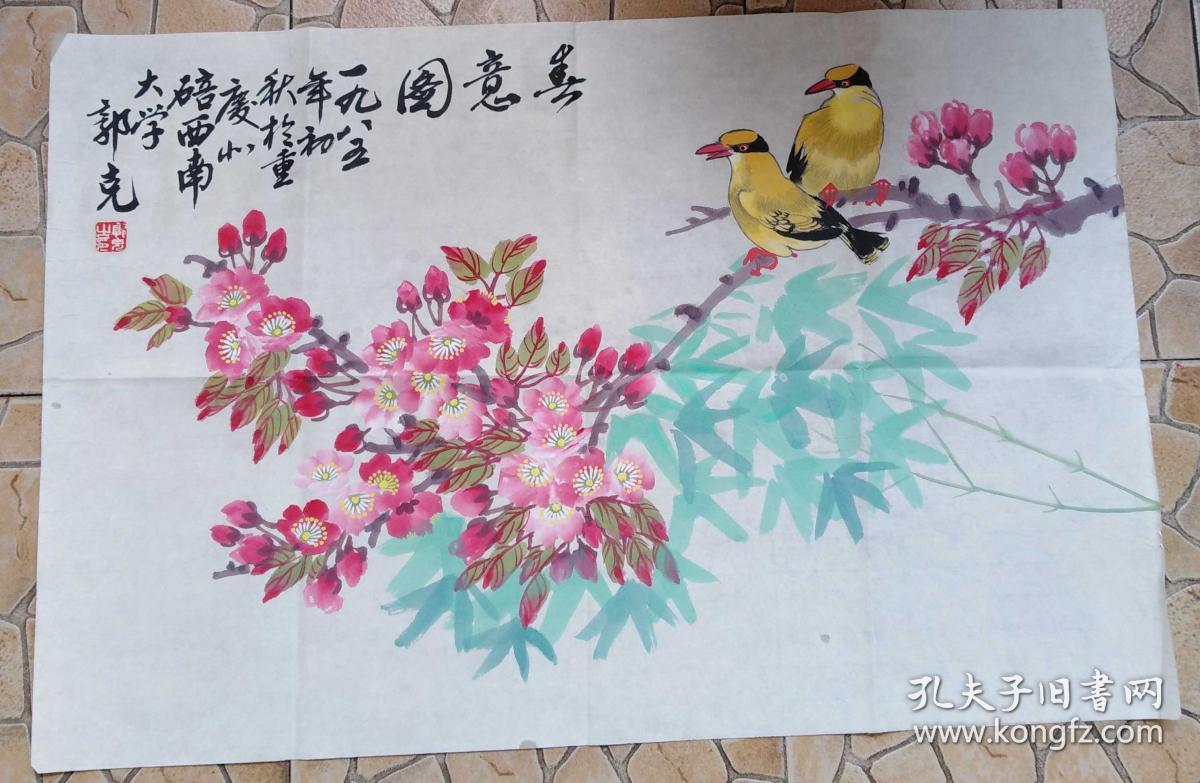 春意图
一九八五
年初
秋於重
庆北
碚西南
大学
郭克
孔夫子旧書网
www.kongfz.com